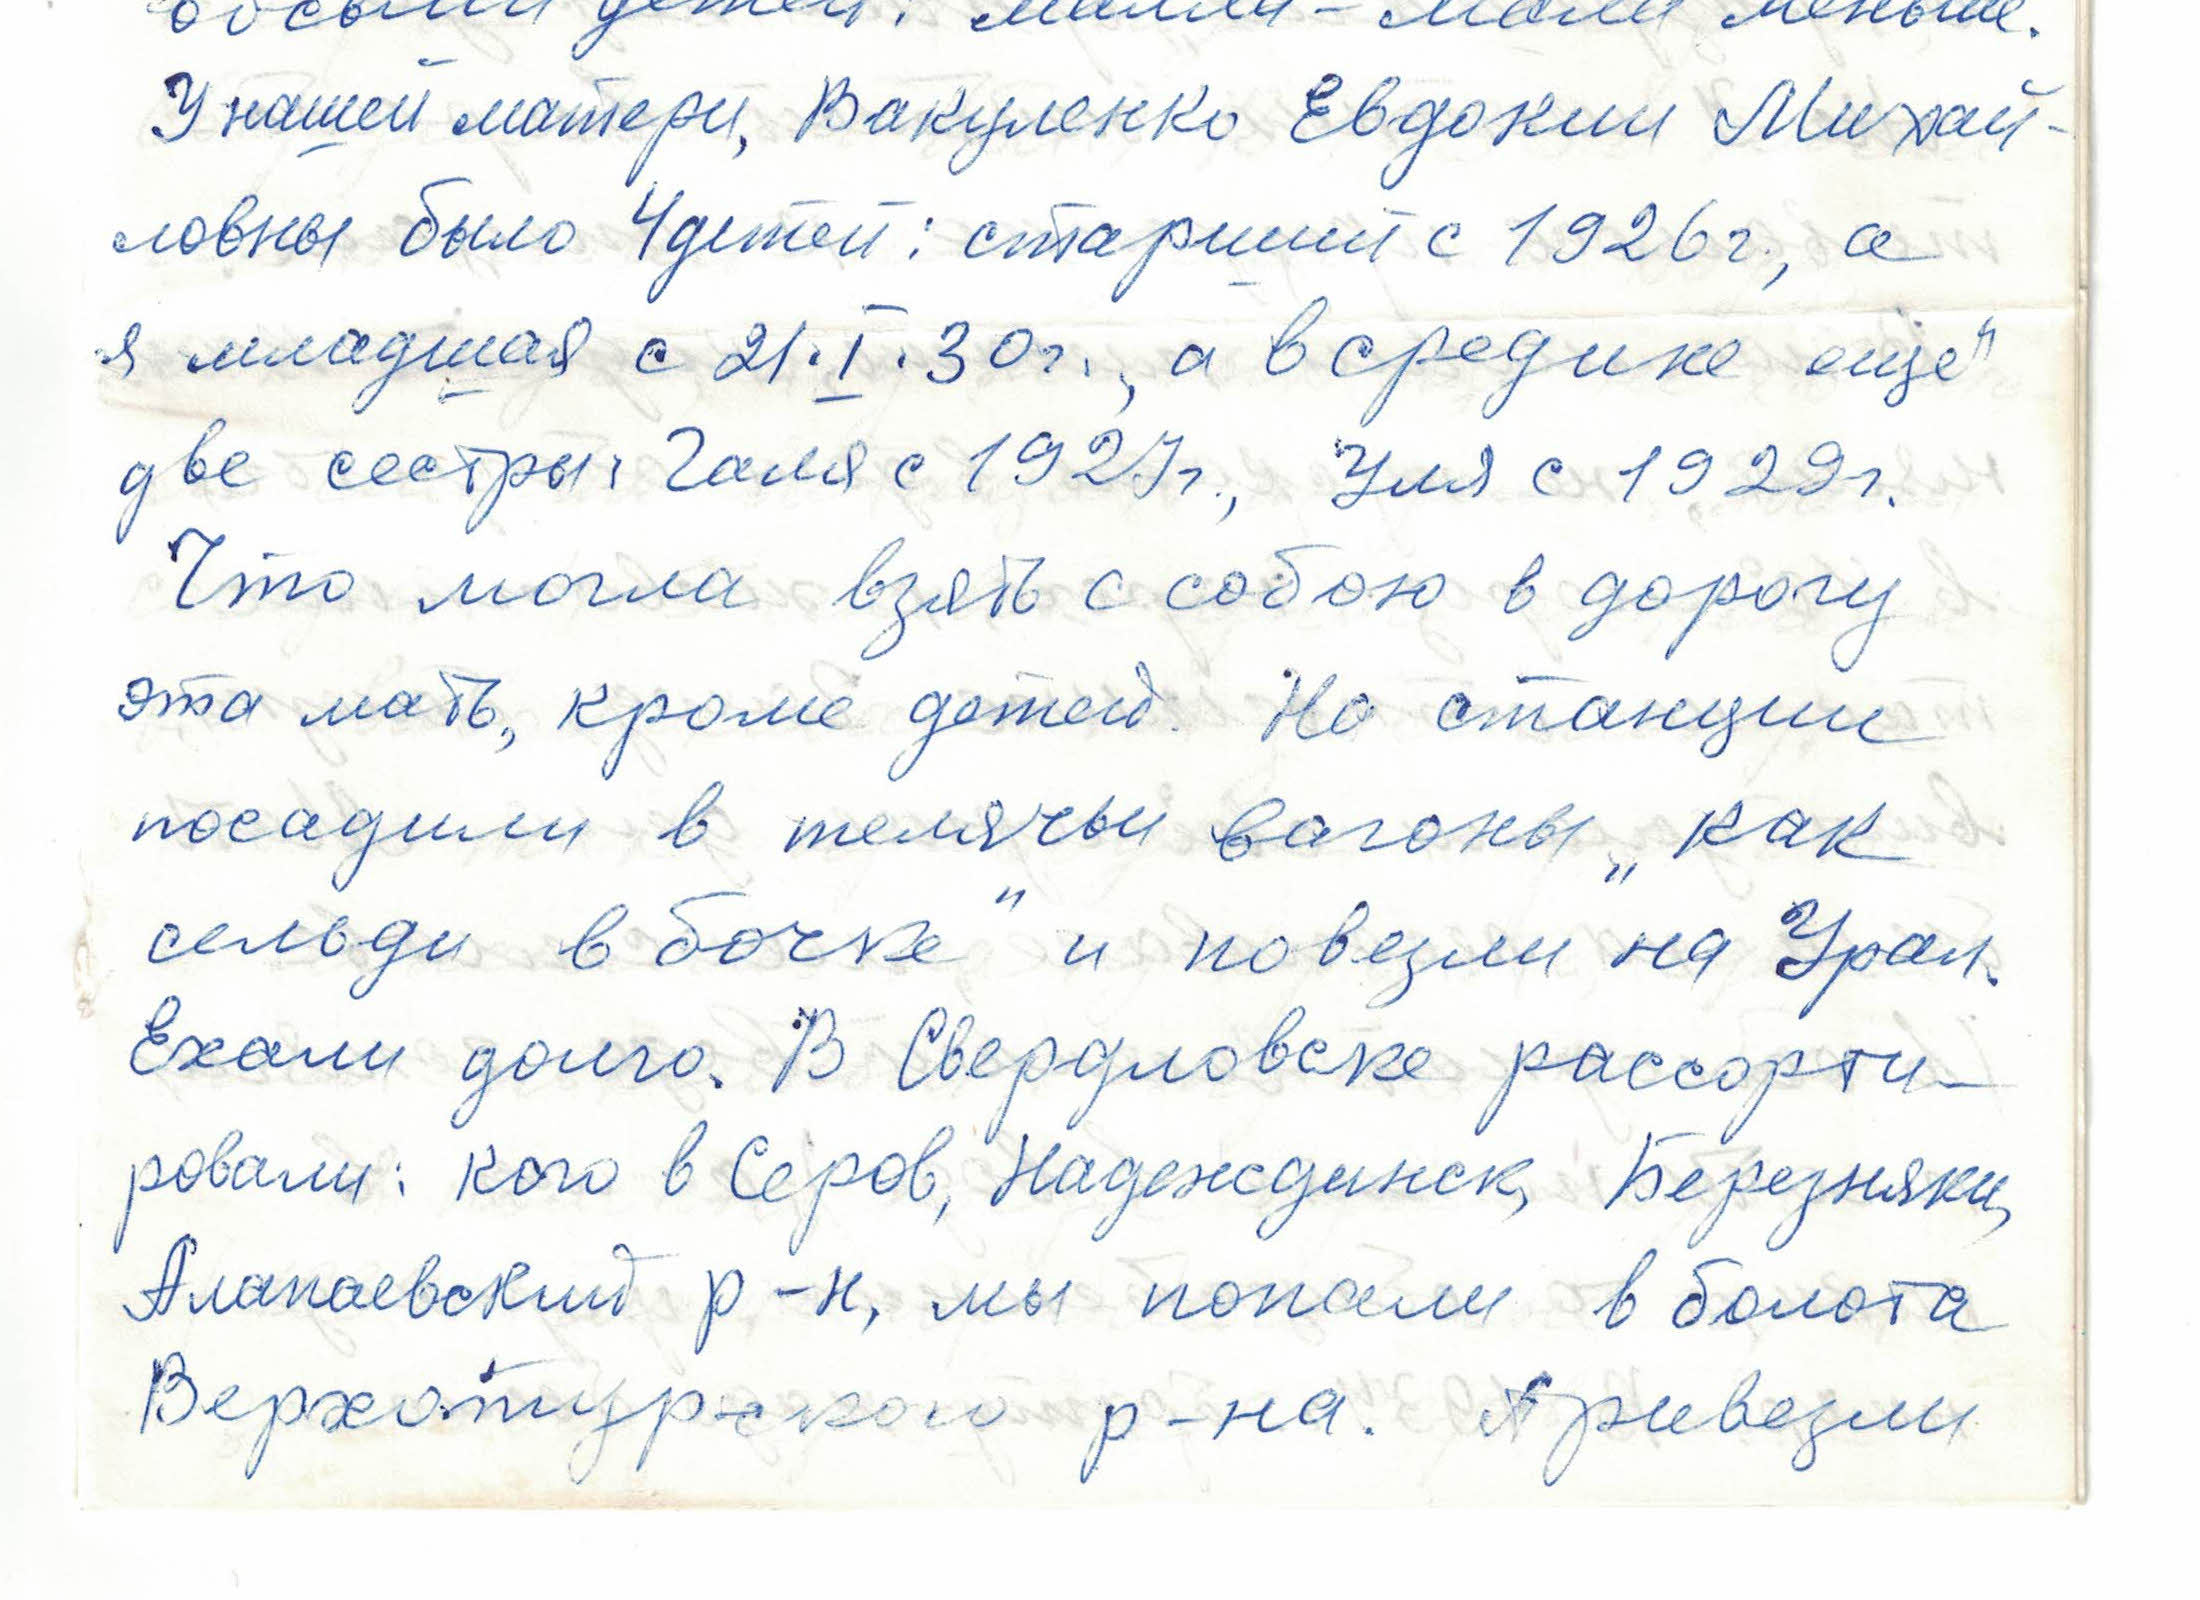 детей: мал-мала меньше.
У нашей матери, Вакуленко Евдокии Михай-
ловны было 4 детей: старший с 1926 г., а
я младшая с 21.I.30 г., а в средине ещё
две сестры: Галя с 1927 г., Уля с 1929 г.
Что могла взять с собою в дорогу
эта мать, кроме детей. На станции
посадили в телячьи вагоны „как
сельди в бочке" и повезли на Урал.
Ехали долго. В Свердловске рассорти-
ровали: кого в Серов, Надеждинск, Березняки,
Алапаевский р-н, мы попали в болота
Верхотурского р-на. Привезли